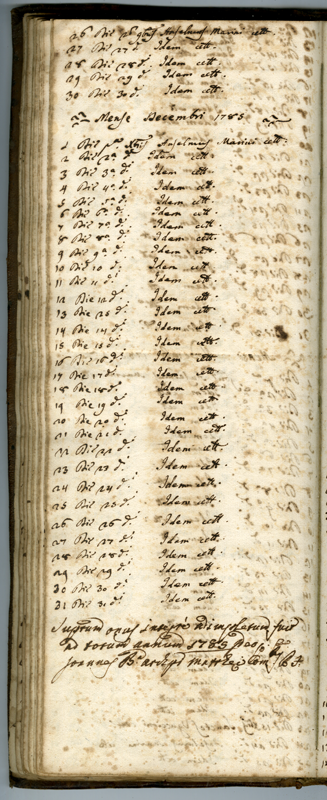 26 Die 26 9bris Anselmus Marini cett.
27 Die 27 di. Idem cett.
28 Die 28 di. Idem cett.
29 Die 29 di. Idem cett.
30 Die 30 di. Idem cett.
Mense Decembri 1783
1 Die pa. Xbris Anselmus Marini cett.
2 Die 2a di. Idem cett.
3 Die 3a di. Idem cett.
4 Die 4a di. Idem cett.
5 Die 5a di. Idem cett.
6 Die 6a di. Idem cett.
7 Die 7a di. Idem cett.
8 Die 8a di. Idem cett.
9 Die 9a di. Idem cett.
10 Die 10 di. Idem cett.
11 Die 11 di. Idem cett.
12 Die 12 di. Idem cett.
13 Die 13 di. Idem cett.
14 Die 14 di. Idem cett.
15 Die 15 di. Idem cett.
16 Die 16 di. Idem cett.
17 Die 17 di. Idem cett.
18 Die 18 di. Idem cett.
19 Die 19 di. Idem cett.
20 Die 20 di. Idem cett.
21 Die 21 di. Idem cett.
22 Die 22 di. Idem cett.
23 Die 23 di. Idem cett.
24 Die 24 di. Idem cett.
25 Die 25 di. Idem cett.
26 Die 26 di. Idem cett.
27 Die 27 di. Idem cett.
28 Die 28 di. Idem cett.
29 Die 29 di. Idem cett.
30 Die 30 di. Idem cett.
31 Die 31 di. Idem cett.
opus integre fuit
ad totum annum 1783
Joannes